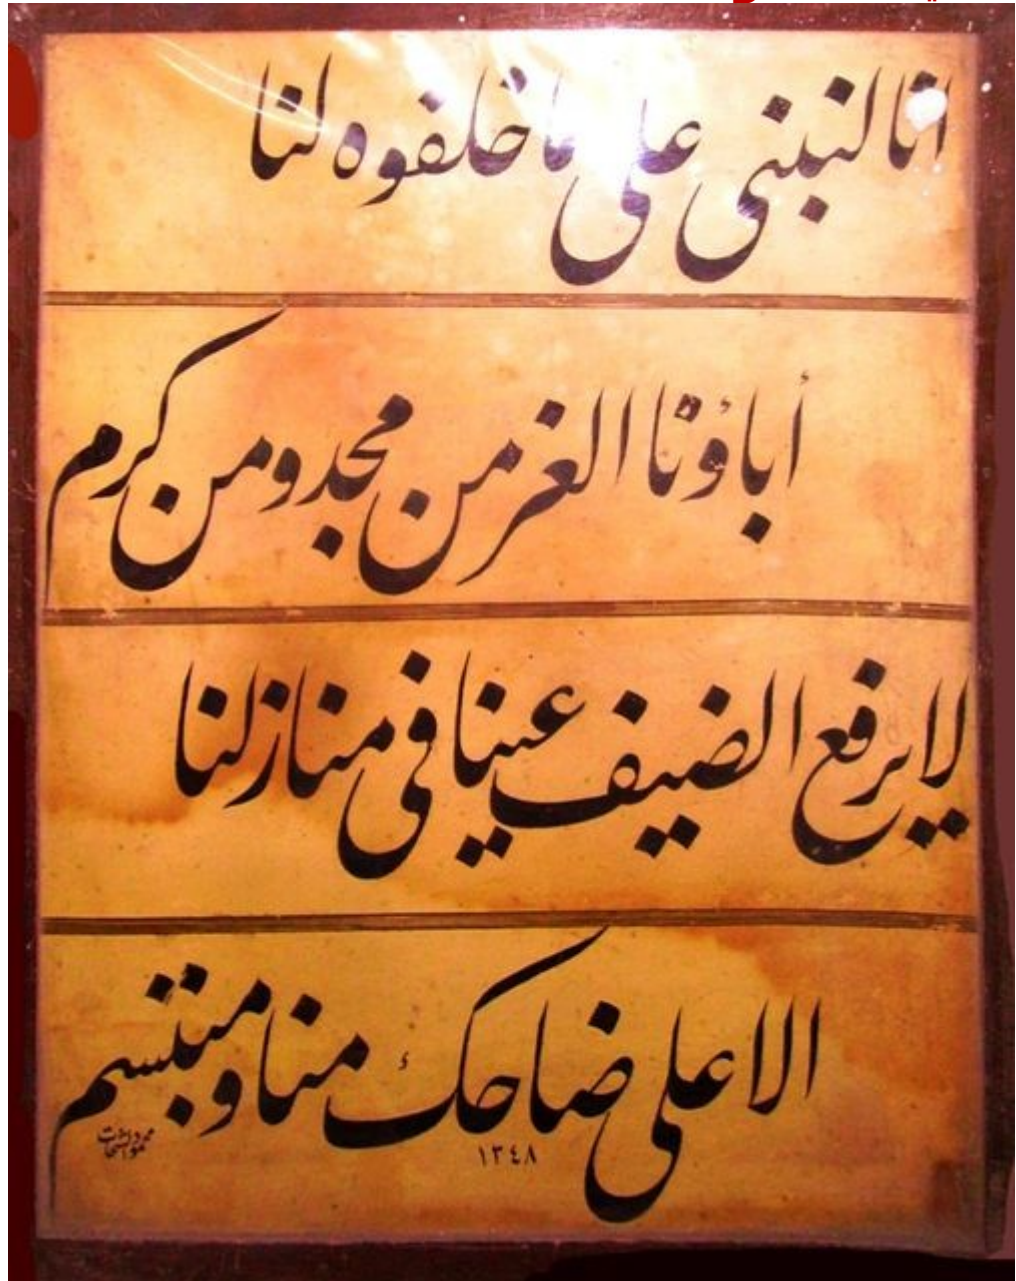 انا لنبني على ما خلفوه لنا
أباؤنا الغر من مجد ومن كرم
لا يرفع الضيف عينا في منازلنا
الا على ضاحك منا ومبتسم
١٣٤٨
محمود الشحات